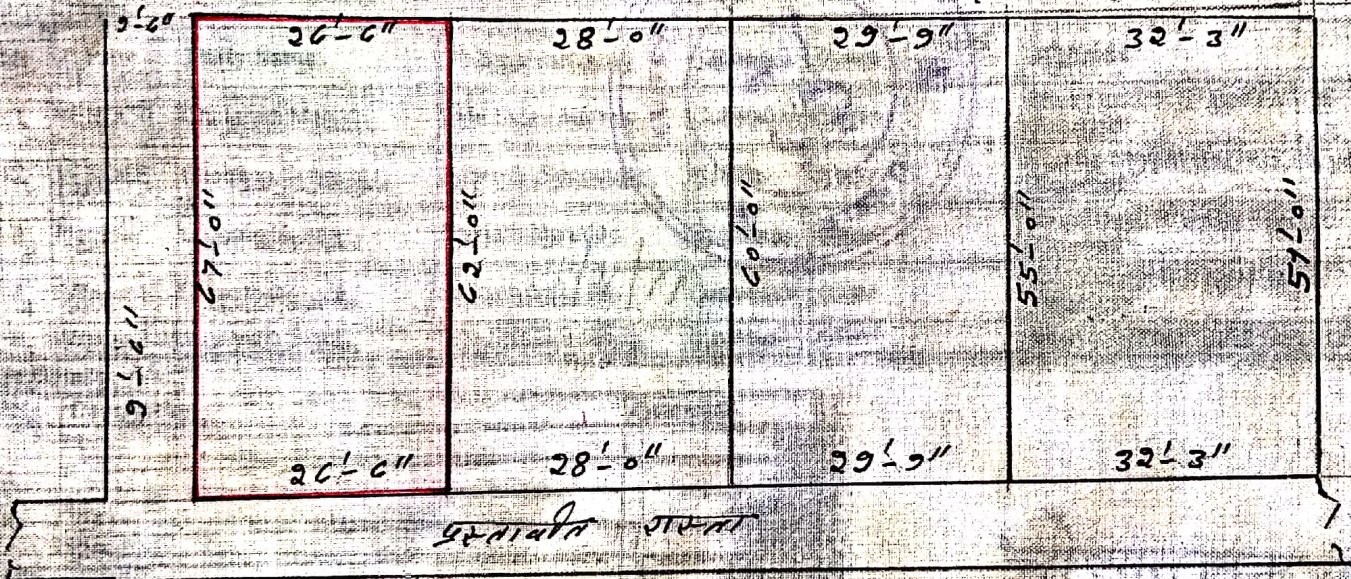 9'-6"
26'-6"
28'-0"
29'-9"
32'-3"
67'-0"
62'-0"
60'-0"
55'-0"
54'-0"
26'-6"
28'-0"
29'-9"
32'-3"
प्रस्तावीत रास्ता